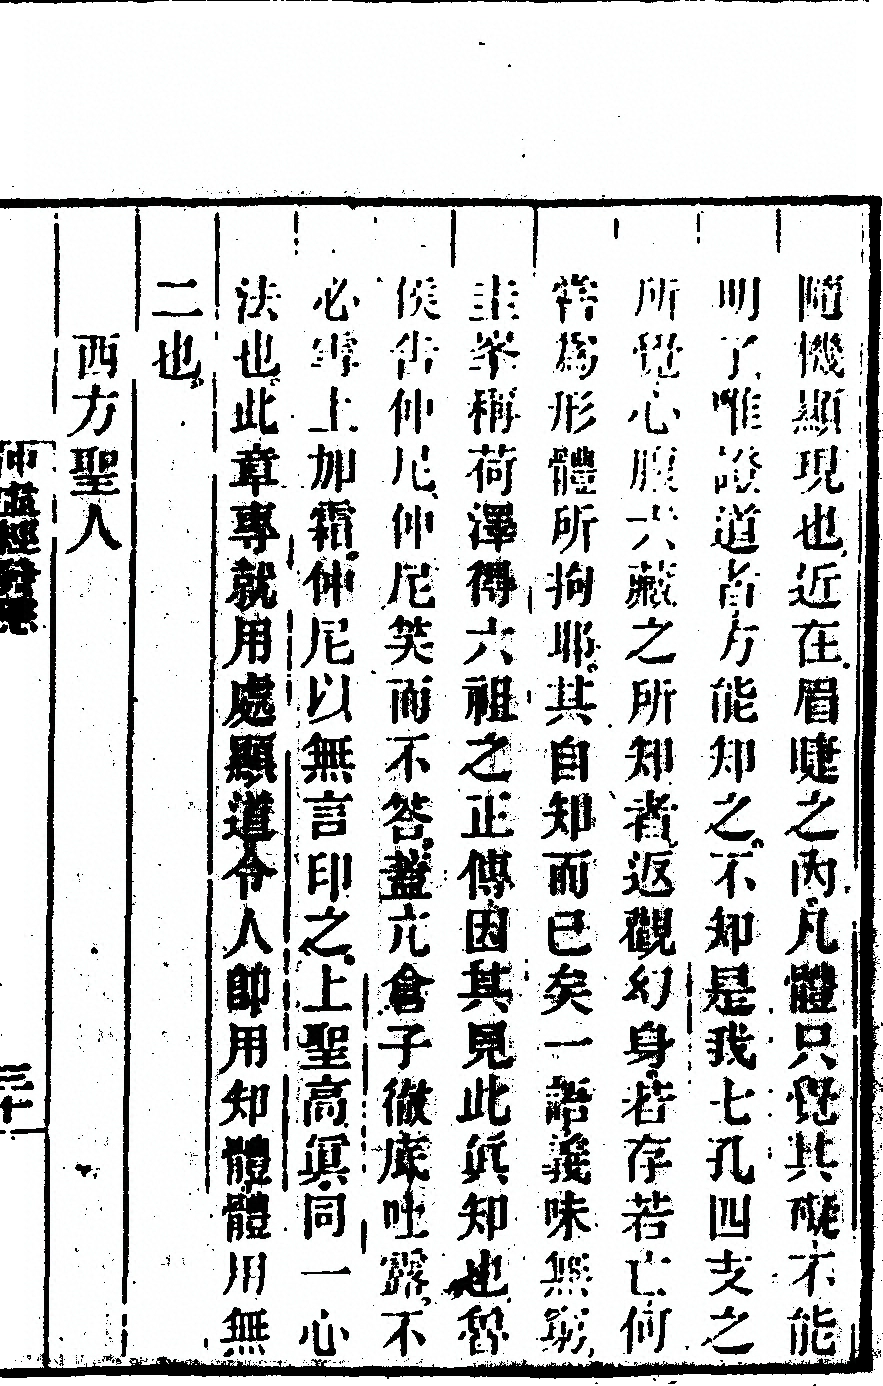 隨機顯現也近在眉睫之內凡體只覺其礙不能
明了唯證道者方能知之不知是我七孔四支之
所覺心腹六藏之所知者返觀幻身若存若亡何
嘗為形體所拘耶其自知而已矣一語義味無窮
圭峯稱荷澤得六祖之正傳因其見此眞知也魯
侯告仲尼仲尼笑而不答蓋亢倉子徹底吐露不
必雪上加霜仲尼以無言印之上聖高眞同一心
法也此章專就用處顯道令人卽用知體體用無
二也
西方聖人
仲虛經發隱
三十